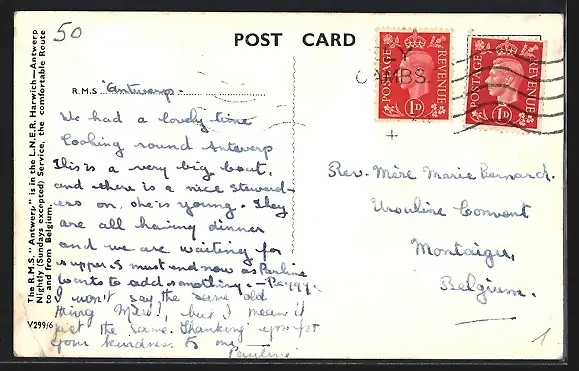 50
POST CARD
The R.M.S. "Antwerp" is in the L.N.E.R. Harwich—Antwerp
Nightly (Sundays excepted) Service, the comfortable Route
to and from Belgium.
V299/6
R.M.S. "Antwerp.
We had a lovely time
looking round Antwerp
This is a very big boat,
and there is a nice steward-
ess on, she is young. They
are all having dinner
and we are waiting for
supper. I must end now as Pauline
wants to add something. — Peggy.
I won't say the same old
thing, but I mean it
just the same. Thanking you for
your kindness to me
Pauline
POSTAGE REVENUE
1D
POSTAGE REVENUE
1D
LEY
COMBS.
Rev. Mère Marie Bernard.
Ursuline Convent
Montaigu,
Belgium.
1